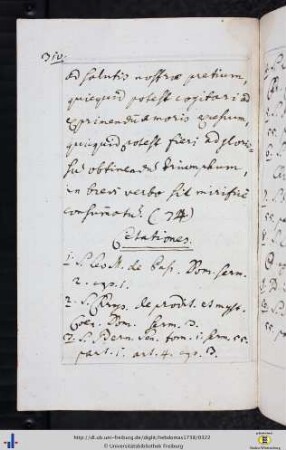 310.
ad salutis nostræ pretium,
quicquid potest cogitari ad
exprimendum amoris excessum,
quicquid potest fieri ad glorio-
sum obtinendum triumphum,
in brevi verbo sit mirificè
consummatum (74)
Citationes.
1. S. Leo M. de Pass. Dom. serm.
2. cap. 1.
2. S. Chrys. de prodit. et myst.
Coen. Dom. serm. 3.
2. S. Bern. sen. tom. 1. serm. 55.
part. 1. art. 4. cap. 3.
http://dl.ub.uni-freiburg.de/diglit/hebdomas1738/0322
Universitätsbibliothek Freiburg